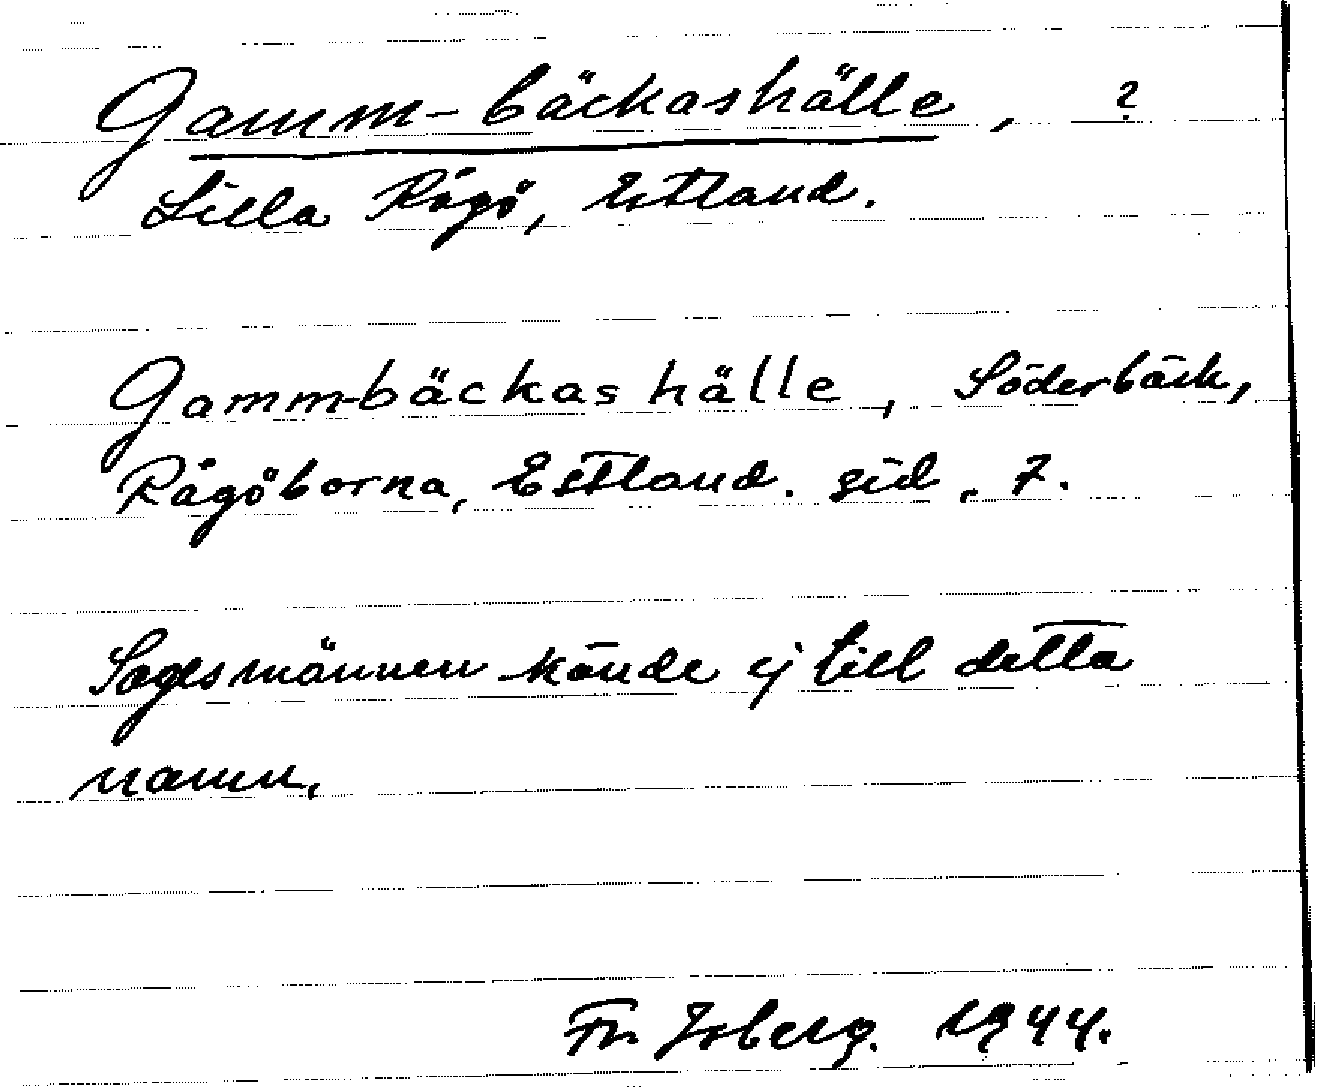 Gamm-bäckashälle, ?
Lilla Rågö, Estland.
Gamm-bäckashälle, Söderbäck,
Rågöborna, Estland. sid. 7.
Sagesmännen kände ej till detta
namn.
Fr. Isberg. 1944.